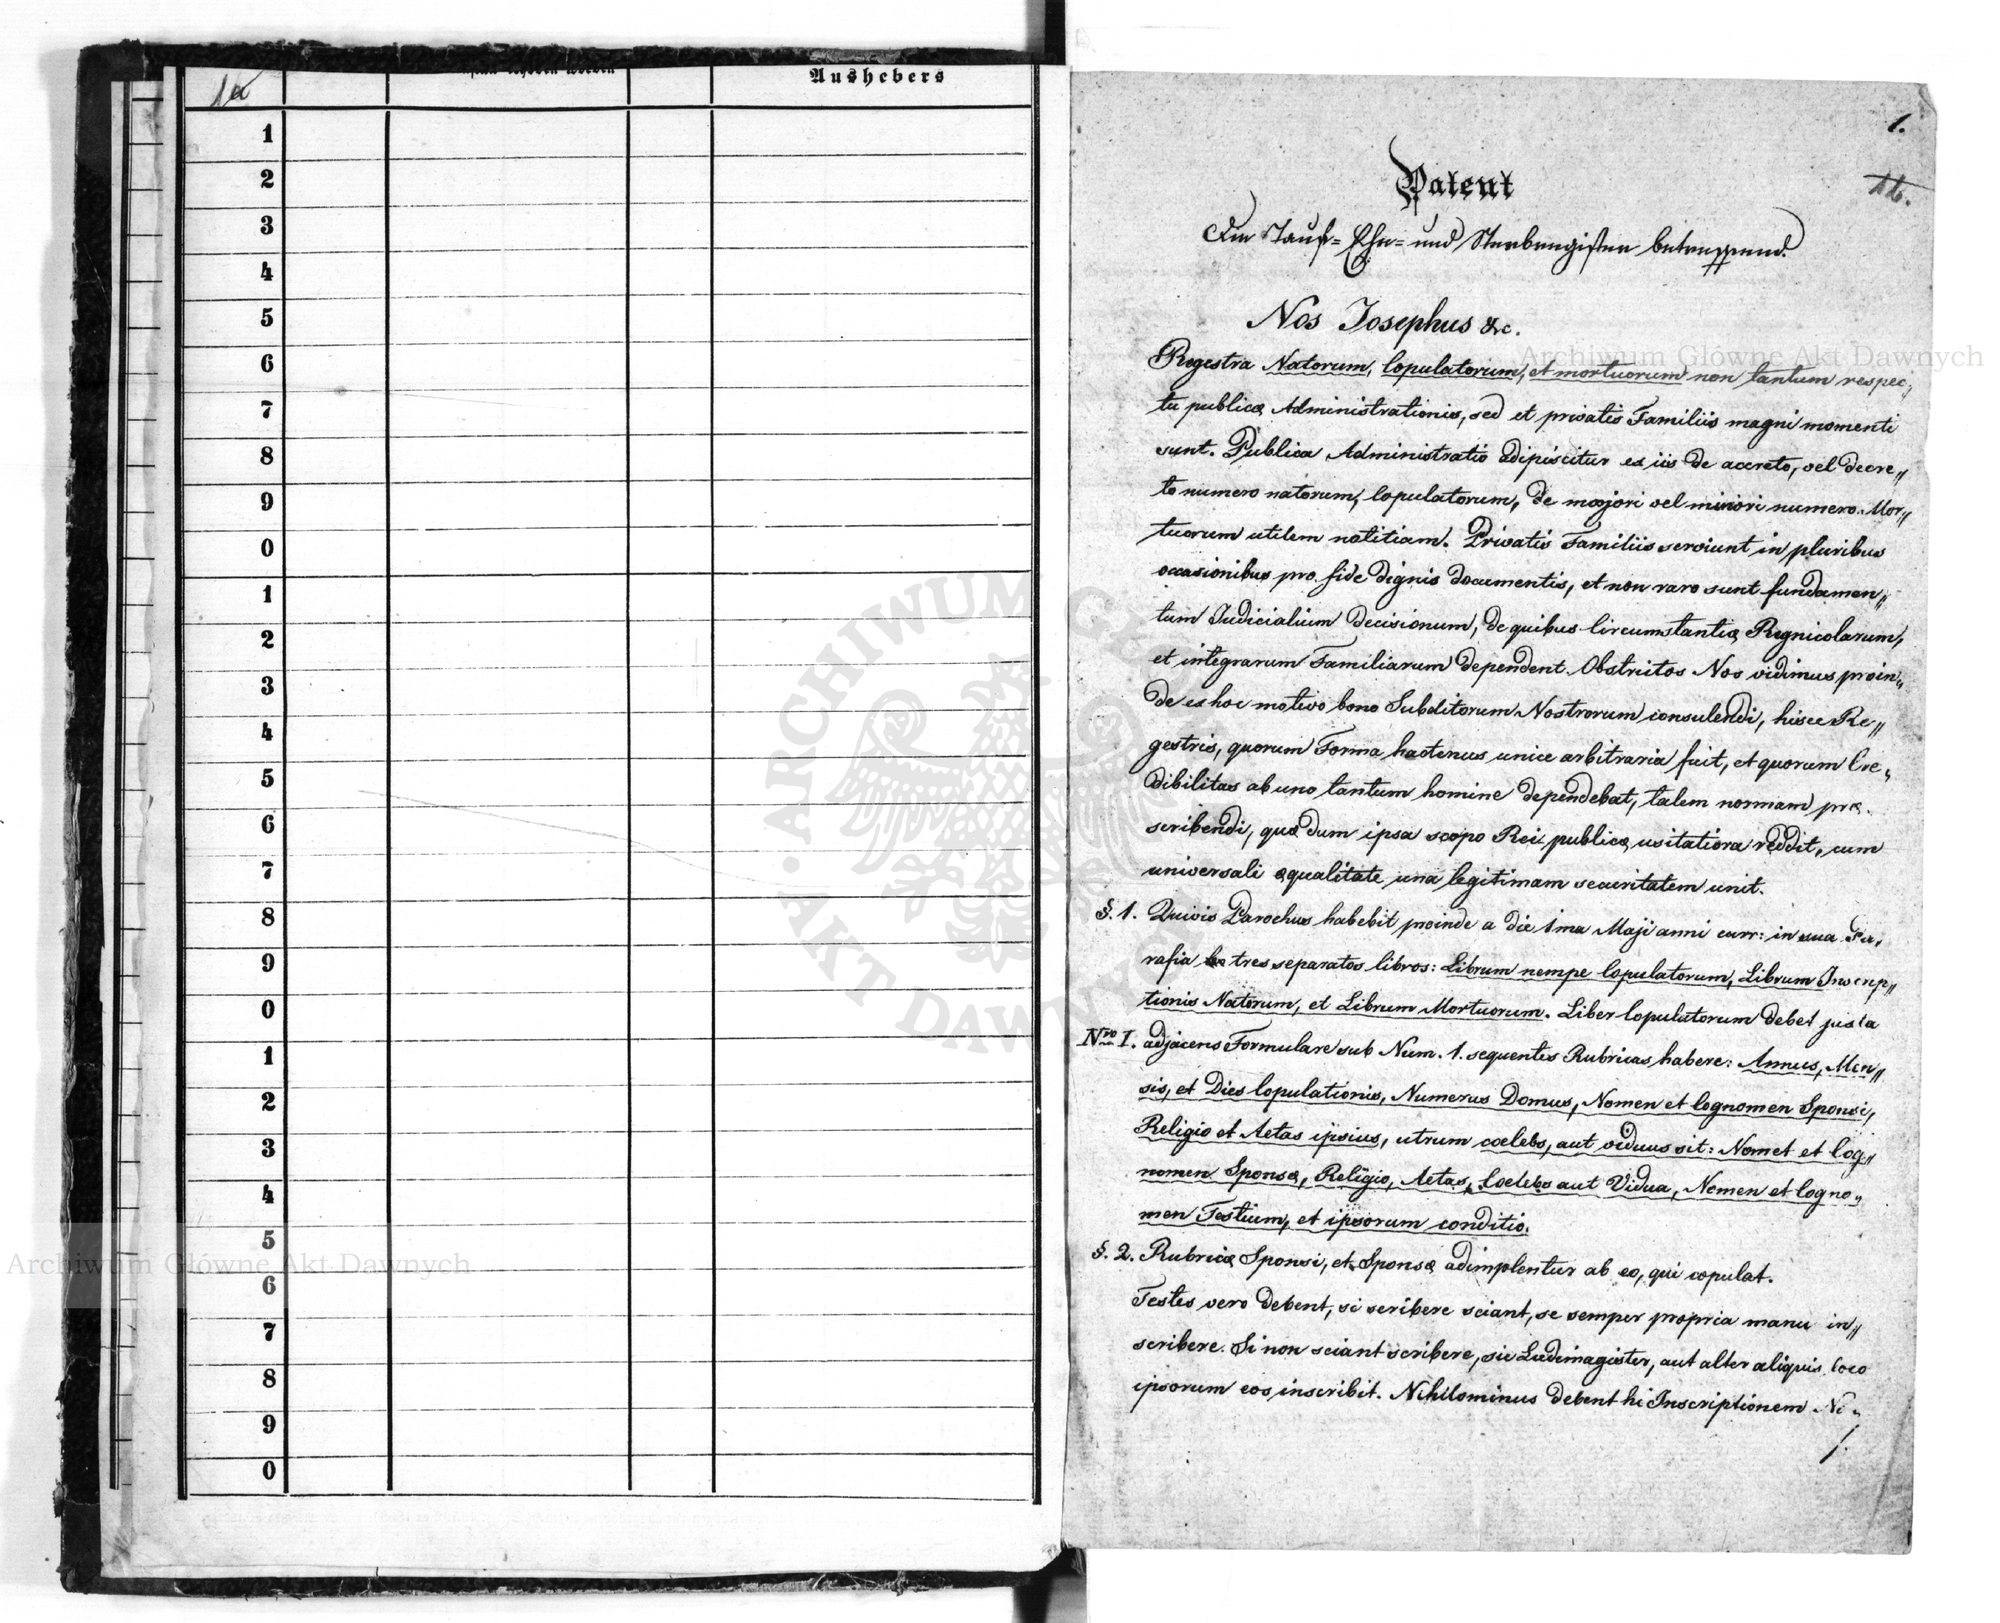 1a
Aushebers
1
2
3
4
5
6
7
8
9
0
1
2
3
4
5
6
7
8
9
0
1
2
3
4
5
6
7
8
9
0
1.
Patent
Die Tauf= Ehe= und Sterbregister betreffend.
Nos Josephus &c.
Regestra Natorum, Copulatorum, et mortuorum non tantum respec„
tu publicæ Administrationis, sed et privatis Familiis magni momenti
sunt. Publica Administratio adipiscitur ex iis de acereto, vel decre„
to numero natorum, Copulatorum, de majori vel minori numero Mor„
tuorum utilem notitiam. Privatis Familiis serviunt in pluribus
occasionibus pro fide dignis documentis, et non raro sunt fundamen„
tum Judicialium decisionum, de quibus Circumstantiæ Regnicolarum,
et integrarum Familiarum dependent. Obstrictos Nos vidimus proin„
de ex hoc motivo bono Subditorum Nostrorum consulendi, hisce Re„
gestris, quorum Forma hactenus unice arbitraria fuit, et quorum Cre„
dibilitas ab uno tantum homine dependebat, talem normam præ„
scribendi, quæ dum ipsa scopo Rei publicæ usitatiora reddit, cum
universali æqualitate una legitimam securitatem unit.
§. 1. Quivis Parochus habebit proinde a die 1ma Maji anni curr: in sua Pa„
rafia tres separatos libros: Librum nempe Copulatorum, Librum Inscrip„
tionis Natorum, et Librum Mortuorum. Liber Copulatorum debet juxta
Nro I. adjacens Formulare sub Num. 1. sequentes Rubricas habere: Annus, Men„
sis, et Dies Copulationis, Numerus Domus, Nomen et Cognomen Sponsi,
Religio et Aetas ipsius, utrum coelebs, aut viduus sit: Nomet et Cog„
nomen Sponsæ, Religio, Aetas, Coelebs aut Vidua, Nomen et Cogno„
men Testium, et ipsorum conditio.
§. 2. Rubricæ Sponsi, et Sponsæ adimplentur ab eo, qui copulat.
Testes vero debent, si scribere sciant, se semper propria manu in„
scribere. Si non sciant scribere, sic Ludimagister, aut alter aliquis loco
ipsorum eos inscribit. Nihilominus debent hi Inscriptionem No„
Archiwum Główne Akt Dawnych
Archiwum Główne Akt Dawnych